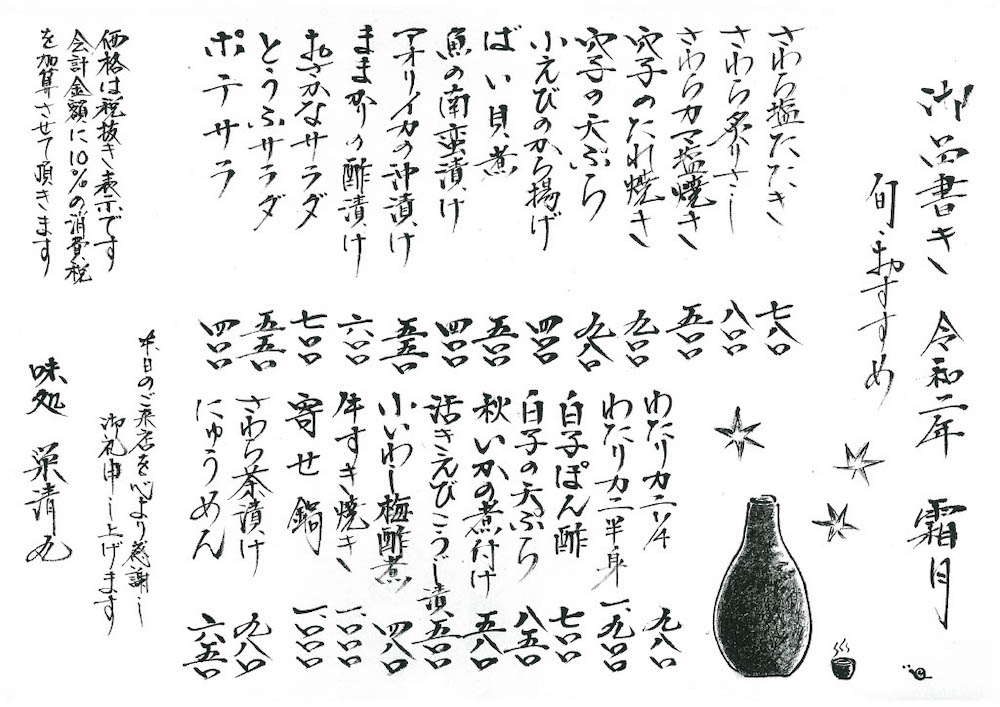 御品書き 令和二年 霜月
旬・おすすめ
さわら塩たたき 七八〇
さわら炙りさし 八〇〇
さわらカマ塩焼き 五〇〇
穴子のたれ焼き 九〇〇
穴子の天ぷら 九八〇
小えびのから揚げ 四〇〇
ばい貝煮 五〇〇
魚の南蛮漬け 四〇〇
アオリイカの沖漬け 五五〇
ままかりの酢漬け 六〇〇
おさかなサラダ 七〇〇
とうふサラダ 五五〇
ポテサラ 四〇〇
わたりカニ1/4 九八〇
わたりカニ半身 一、九〇〇
白子ぽん酢 七〇〇
白子の天ぷら 八五〇
秋いかの煮付け 五八〇
活きえびこうじ漬 五〇〇
小いわし梅酢煮 四八〇
牛すき焼き 一、〇〇〇
寄せ鍋 一、〇〇〇
さわら茶漬け 九八〇
にゅうめん 六五〇
価格は税抜き表示です
会計金額に10%の消費税
を加算させて頂きます
本日のご来店を心より感謝し
御礼申し上げます
味処 栄清丸